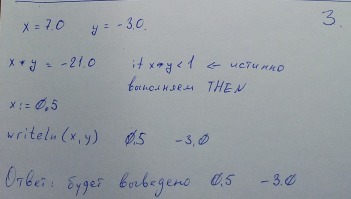 3.
x = 7.0 y = -3.0.
x * y = -21.0 if x*y < 1 ← истинно
выполняем THEN
x := 0,5
writeln(x,y) 0.5 -3.0
Ответ: будет выведено 0.5 -3.0